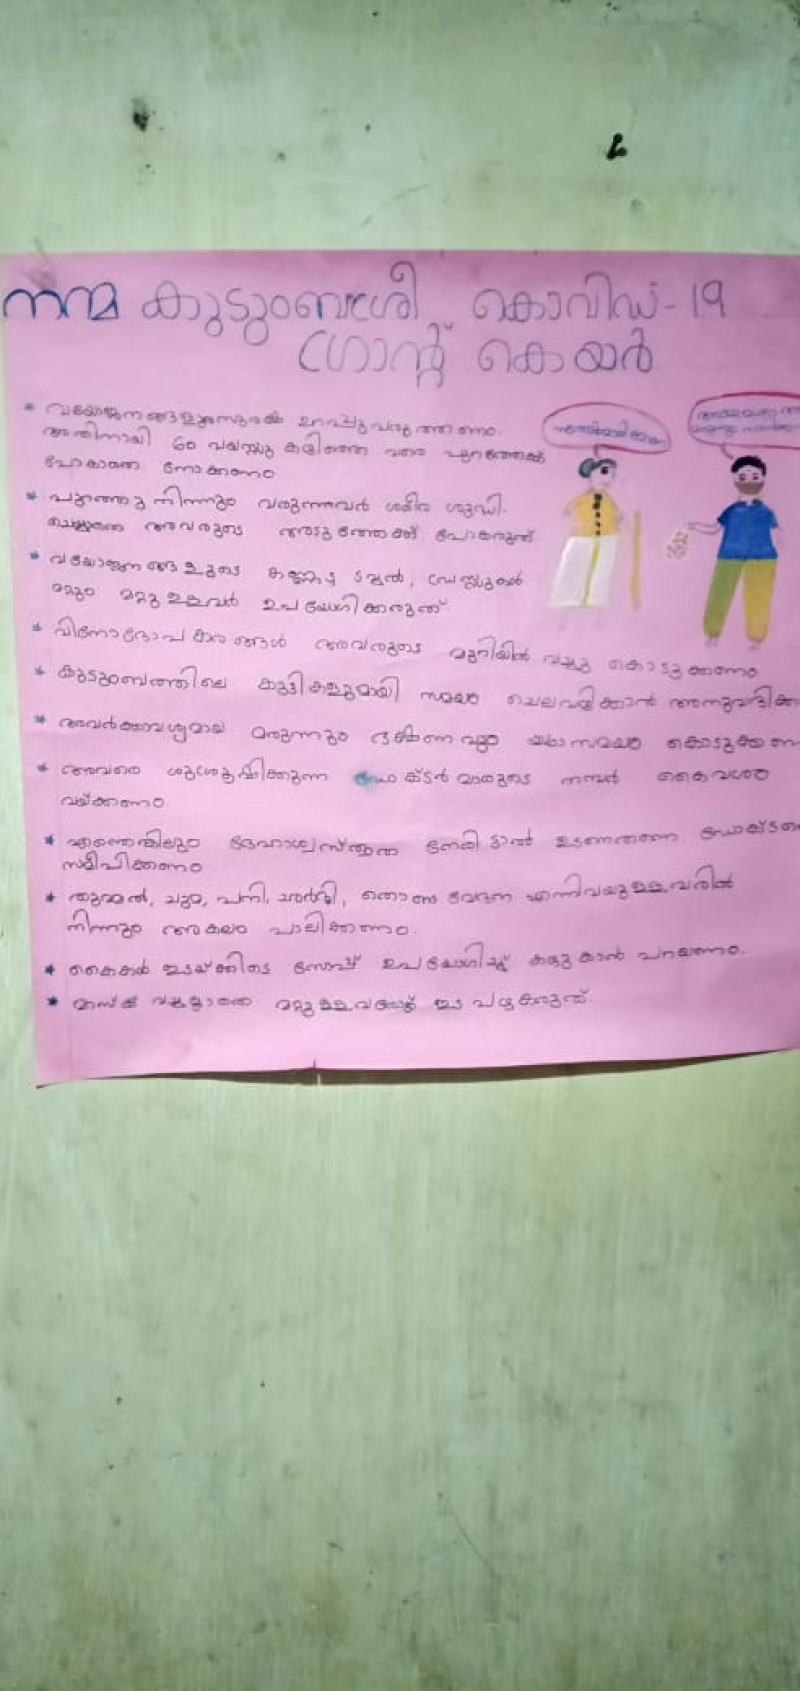 നന്മ കുടുംബശ്രീ കൊവിഡ് - 19
ഗ്രാന്റ് കെയർ
* വയോജനങ്ങളുടെ സുരക്ഷ ഉറപ്പുവരുത്തണം.
അതിനായി 60 വയസ്സു കഴിഞ്ഞ വരെ പുറത്തേക്ക്
പോകാതെ നോക്കണം
* പുറത്തു നിന്നും വരുന്നവർ ശരീര ശുദ്ധി.
അവരുടെ അടുത്തേക്ക് പോകരുത്
* വയോജനങ്ങളുടെ കണ്ണട, ടവ്വൽ, ഡ്രസ്സുകൾ
മറ്റും മറ്റുള്ളവർ ഉപയോഗിക്കരുത്.
* വിനോദോപകരണങ്ങൾ അവരുടെ മുറിയിൽ വച്ചു കൊടുക്കണം
* കുടുംബത്തിലെ കുട്ടികളുമായി സമയം ചെലവഴിക്കാൻ
* അവർക്കാവശ്യമായ മരുന്നും ഭക്ഷണവും യഥാസമയം
* അവരെ ശുശ്രൂഷിക്കുന്ന ഡോക്ടർമാരുടെ നമ്പർ കൈവശം
വയ്ക്കണം
* എന്തെങ്കിലും ദേഹാസ്വസ്ഥത നേരിട്ടാൽ ഉടനെതന്നെ
സമീപിക്കണം
* തുമ്മൽ, ചുമ, പനി, ഛർദ്ദി, തൊണ്ട വേദന എന്നിവയുള്ളവരിൽ
നിന്നും അകലം പാലിക്കണം.
* കൈകൾ ഇടയ്ക്കിടെ സോപ്പ് ഉപയോഗിച്ച് കഴുകാൻ പറയണം.
* മാസ്ക് വച്ചല്ലാതെ ഇടപഴകരുത്.